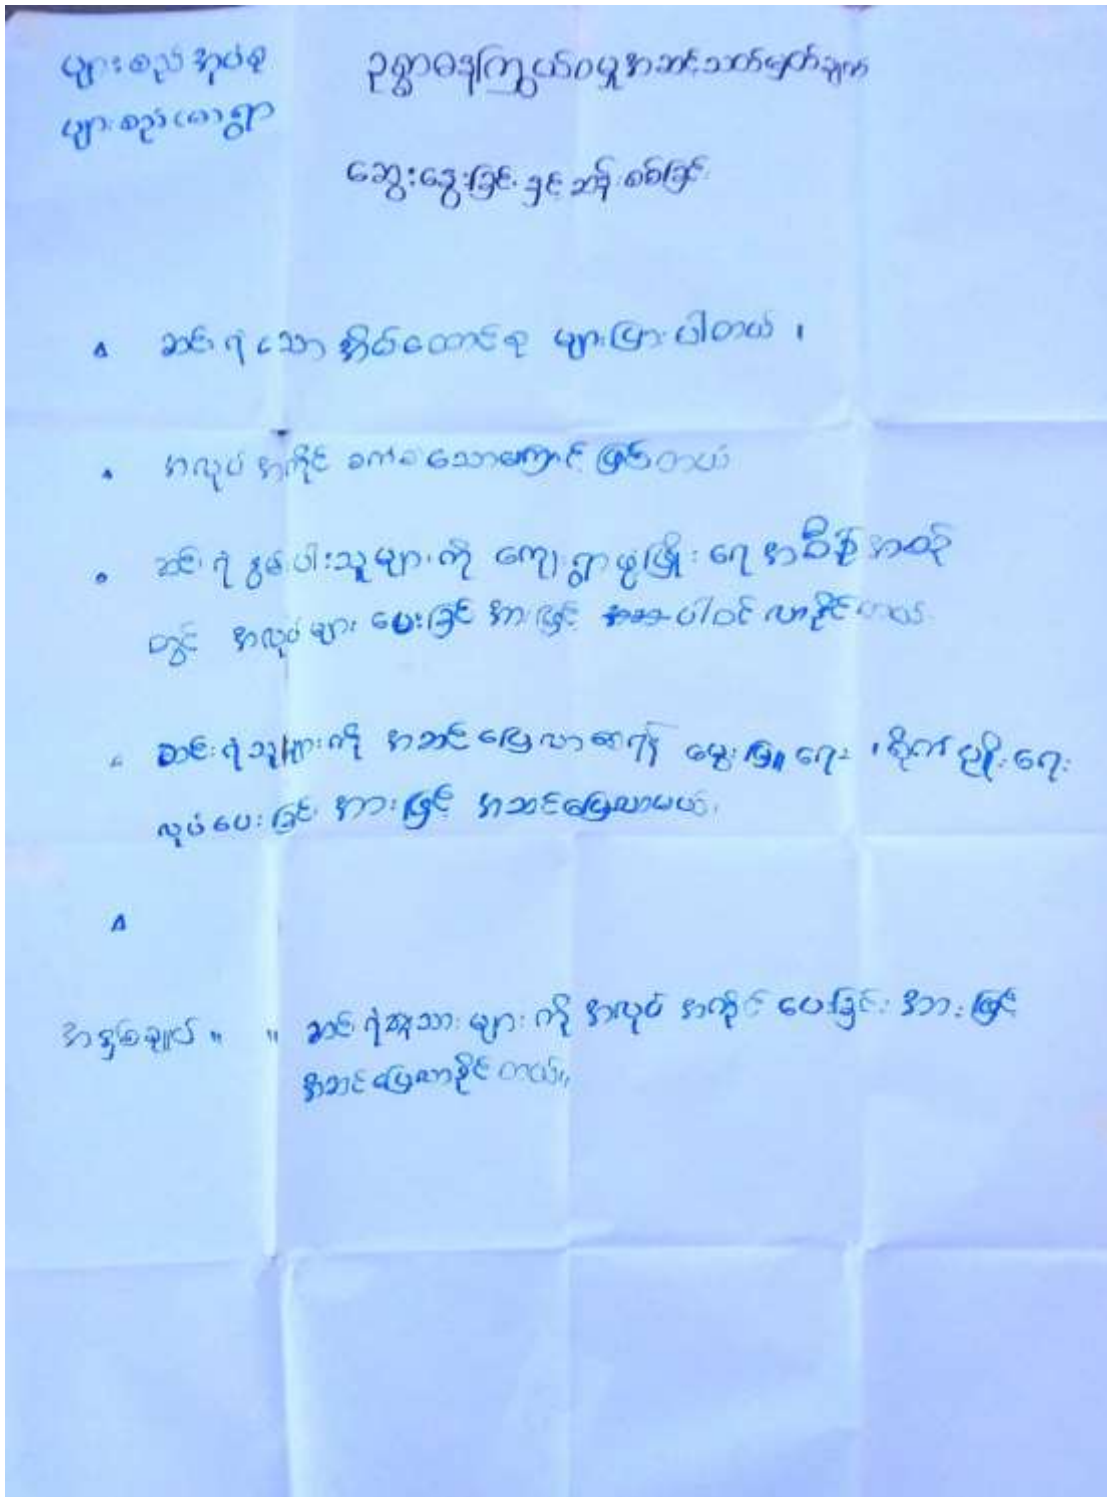 များစည်အုပ်စု
ဥစ္စာဓနကြွယ်ဝမှုအဆင့်သတ်မှတ်ချက်
များစည်ကျေးရွာ
ဆွေးနွေးခြင်းနှင့်ဆန်းစစ်ခြင်း
ဆင်းရဲသောအိမ်ထောင်စု များပြားပါတယ်၊
အလုပ်အကိုင် ခက်ခဲသောကြောင့် ဖြစ်တယ်
ဆင်းရဲနွမ်းပါးသူများကို ကျေးရွာဖွံ့ဖြိုးရေးအစီအစဉ်
တွင် အလုပ်များ ပေးခြင်းအားဖြင့် ပါဝင်လာနိုင်တယ်
ဆင်းရဲသူများကို အဆင်ပြေလာစေရန် မွေးမြူရေး၊ စိုက်ပျိုးရေး
လုပ်ပေးခြင်းအားဖြင့် အဆင်ပြေလာမယ်၊
အနှစ်ချုပ်။ ။ ဆင်းရဲသားများကို အလုပ်အကိုင်ပေးခြင်းအားဖြင့်
အဆင်ပြေလာနိုင်တယ်။